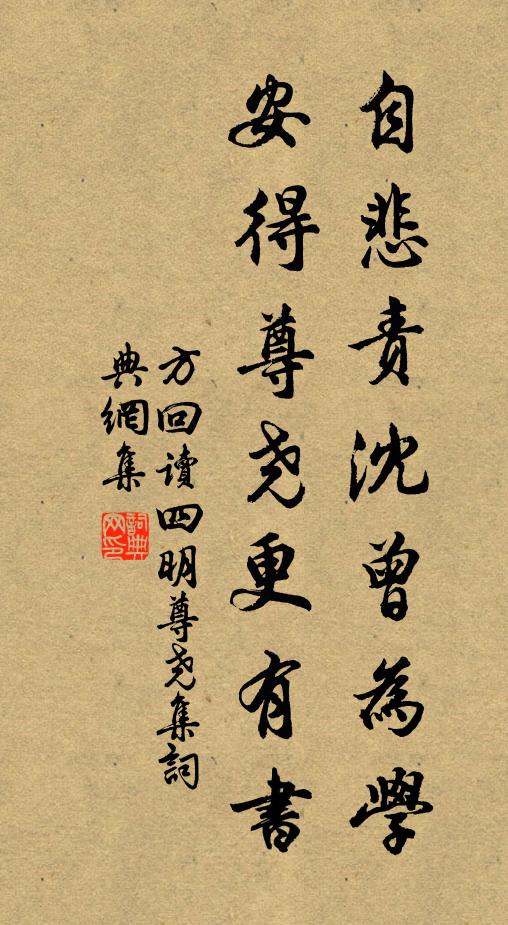 自悲責沈曾為學
安得尊尧更有書
方回讀四明尊尧集詞
典網集
詞典
网印